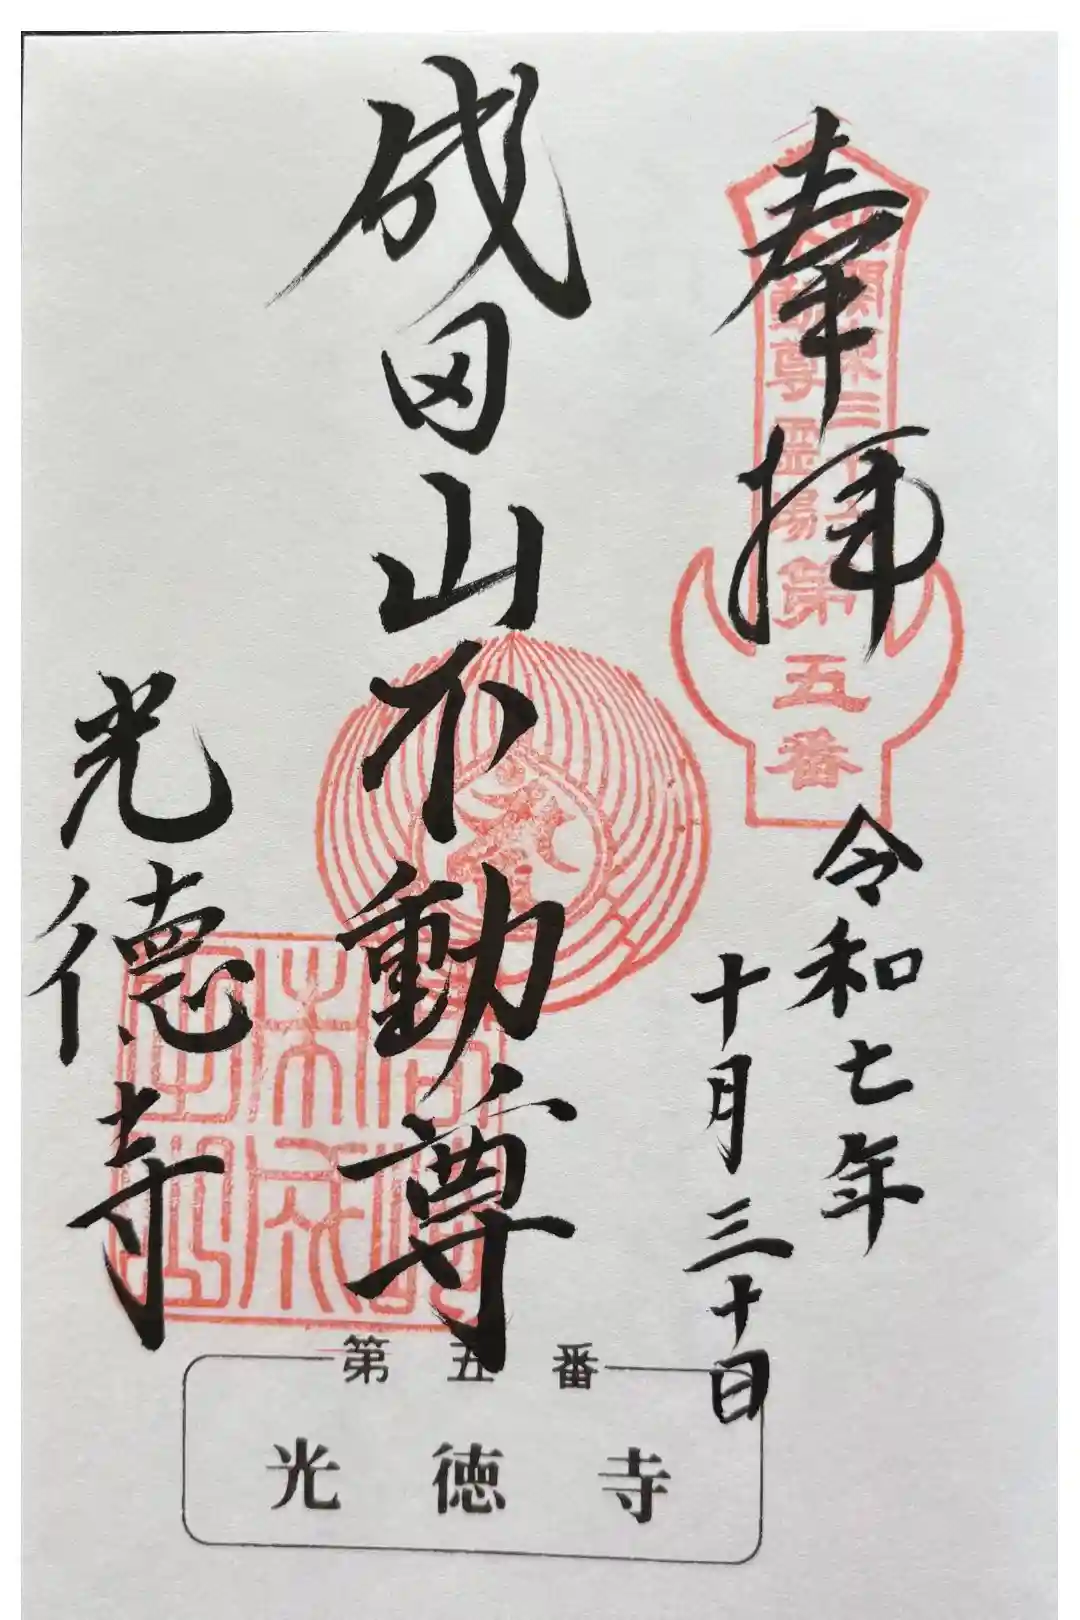 奉拝
關東三十六
動尊霊場第五番
令和七年
十月三十日
成田山不動尊
光德寺
第五番
光徳寺